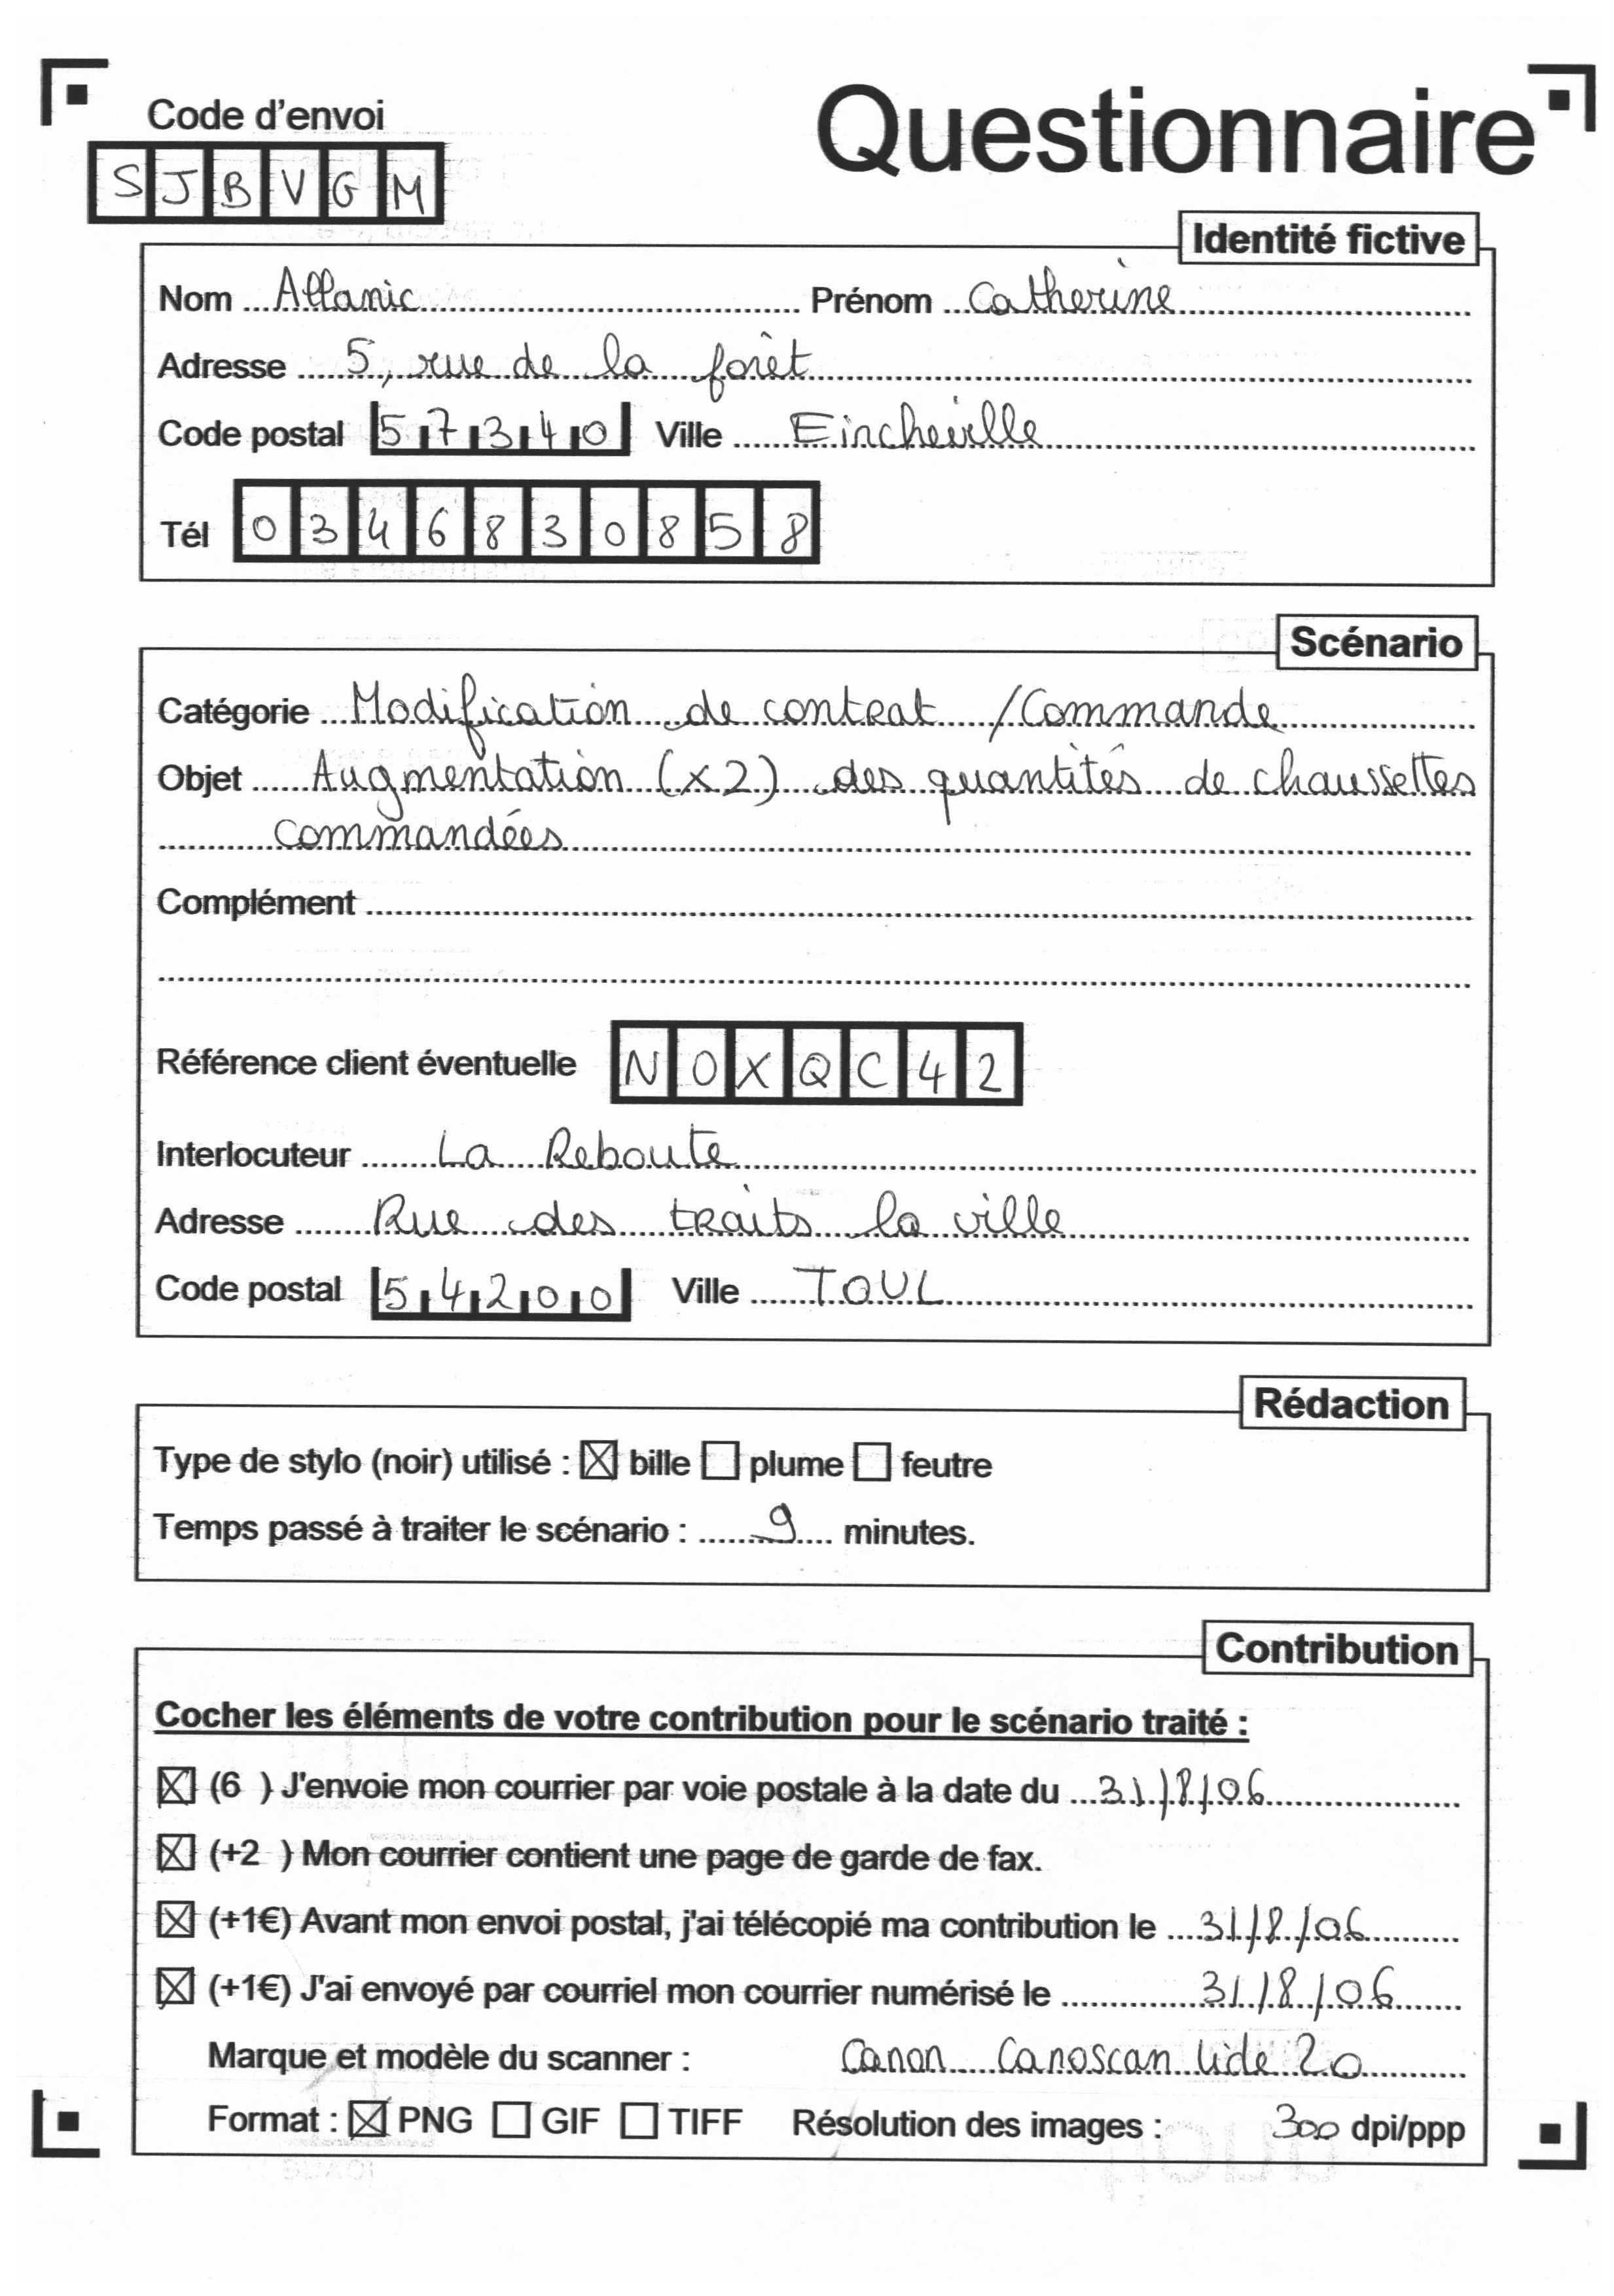 Code d'envoi
Questionnaire
SJBVGM
Identité fictive
Nom Allanic Prénom Catherine
Adresse 5, rue de la forêt
Code postal 57340 Ville Eincheville
Tél 0346830858
Scénario
Catégorie Modification de contrat / Commande
Objet Augmentation (x2) des quantités de chaussettes
commandées
Complément
Référence client éventuelle NOXQC42
Interlocuteur La Reboute
Adresse Rue des traits la ville
Code postal 54200 Ville TOUL
Rédaction
Type de stylo (noir) utilisé : ☒ bille ☐ plume ☐ feutre
Temps passé à traiter le scénario : 9 minutes.
Contribution
Cocher les éléments de votre contribution pour le scénario traité :
☒ (6 ) J'envoie mon courrier par voie postale à la date du 31/8/06
☒ (+2 ) Mon courrier contient une page de garde de fax.
☒ (+1€) Avant mon envoi postal, j'ai télécopié ma contribution le 31/8/06
☒ (+1€) J'ai envoyé par courriel mon courrier numérisé le 31/8/06
Marque et modèle du scanner : Canon Canoscan lide 20
Format : ☒ PNG ☐ GIF ☐ TIFF Résolution des images : 300 dpi/ppp